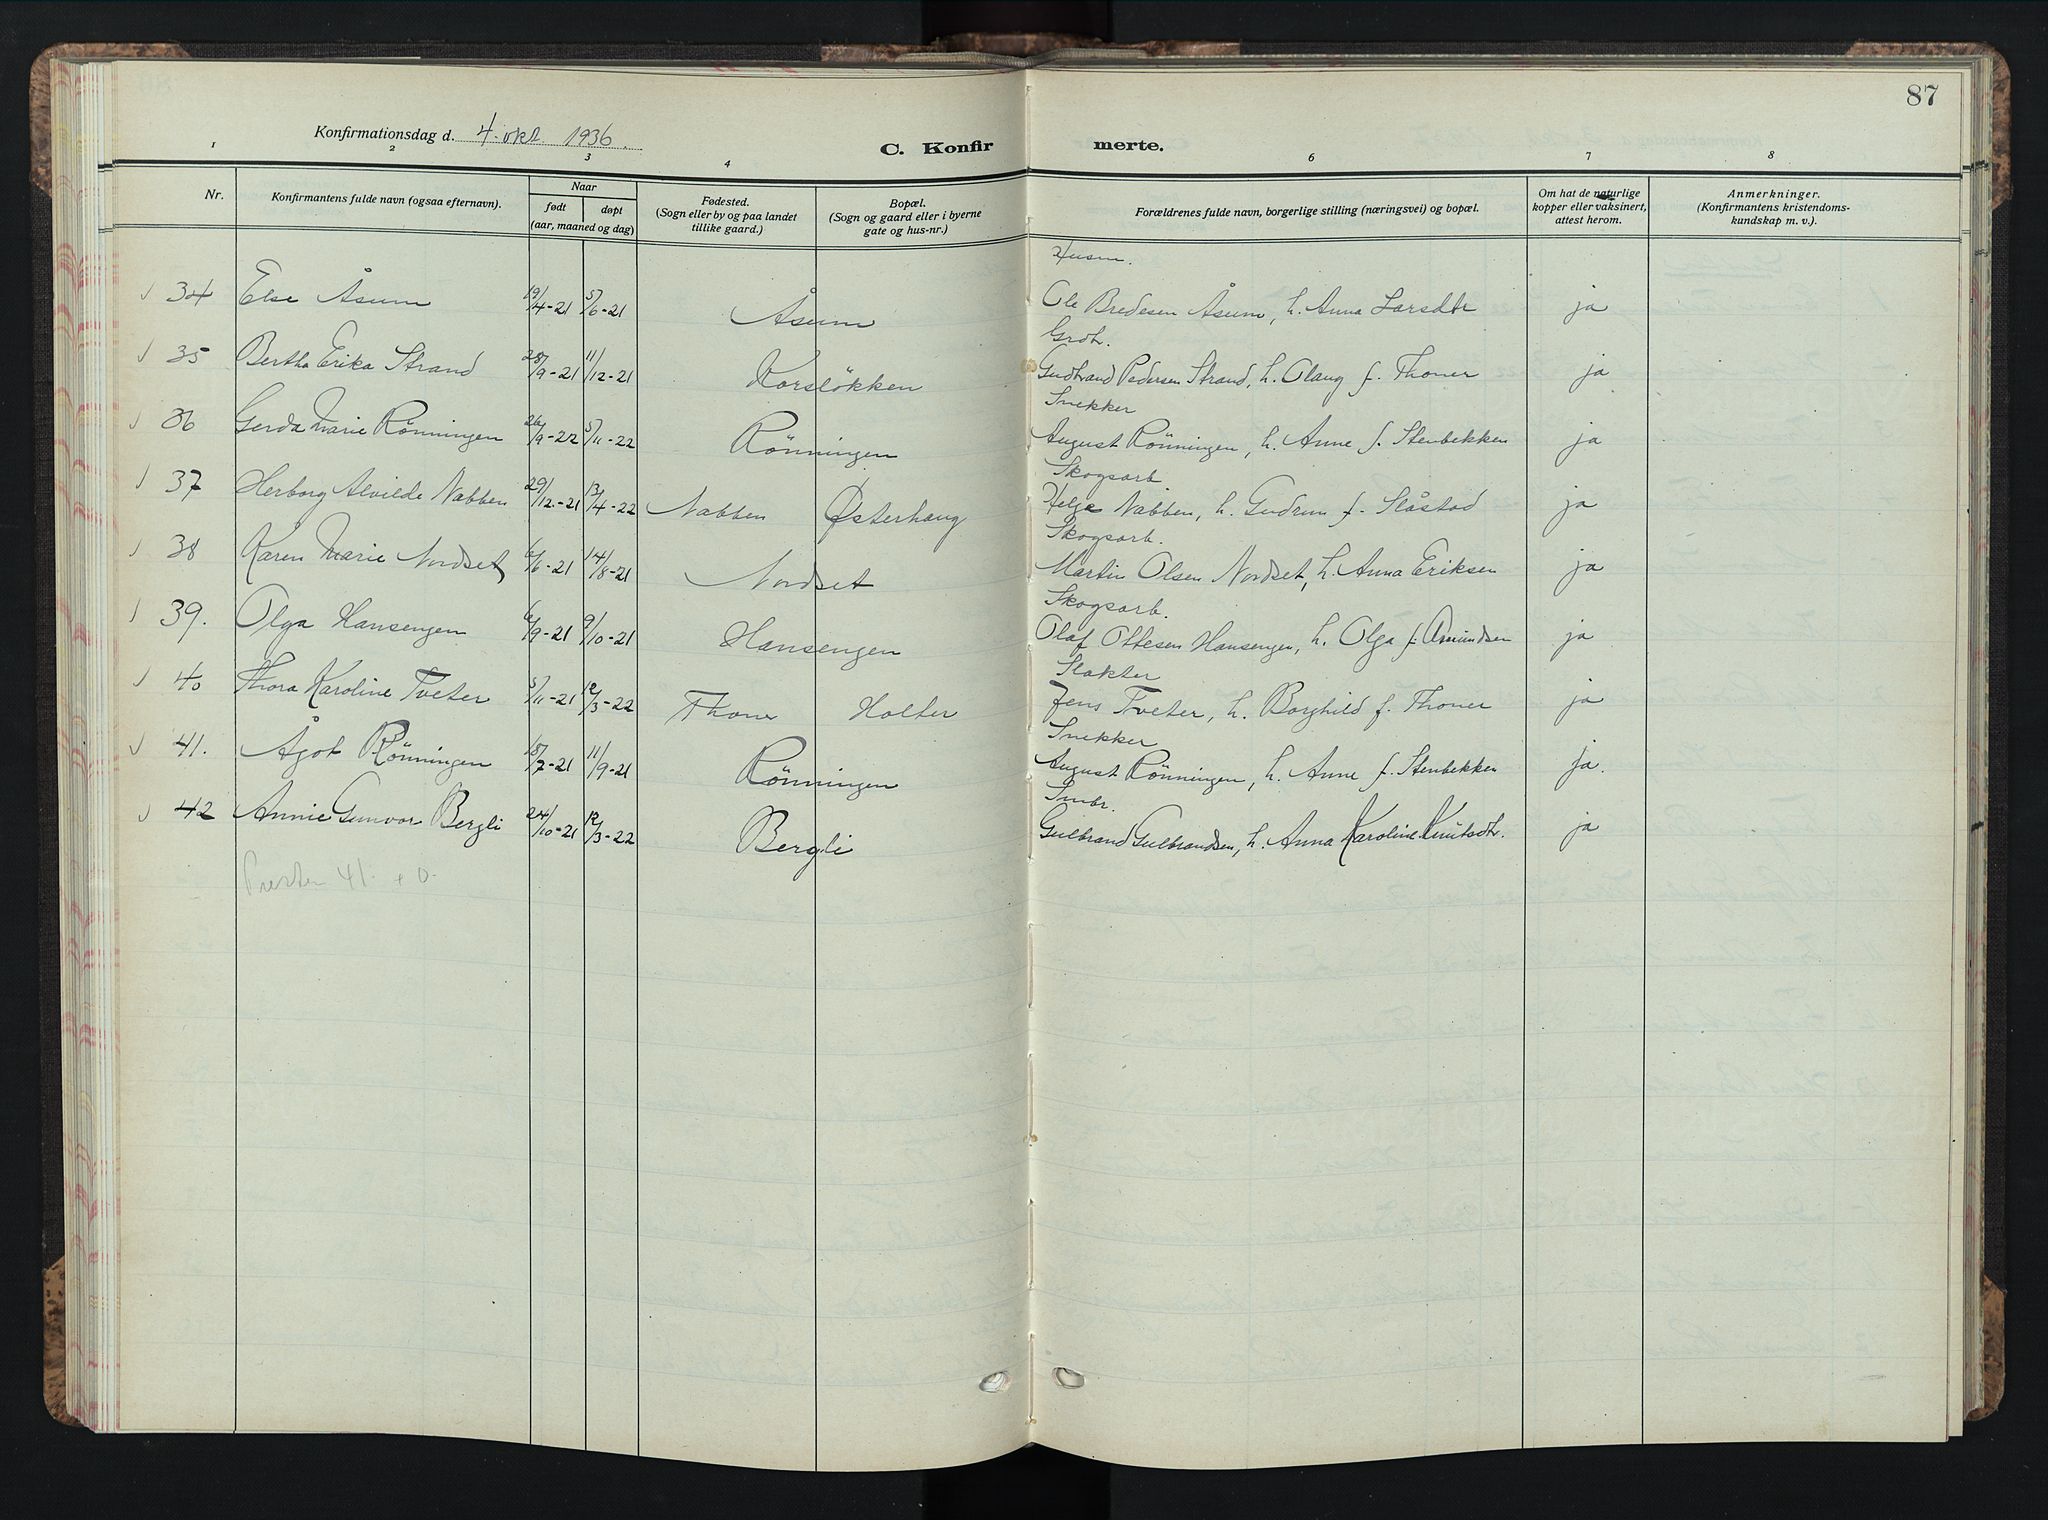 87
Konfirmationsdag d. 4. okt. 1936.
C. Konfirmerte.
1 2 3 4 6 7 8
Nr.
Konfirmantens fulde navn (ogsaa efternavn).
Naar
født døpt
(aar, maaned og dag)
Fødested.
(Sogn eller by og paa landet
tillike gaard.)
Bopæl.
(Sogn og gaard eller i byerne
gate og hus-nr.)
Forældrenes fulde navn, borgerlige stilling (næringsvei) og bopæl.
Om hat de naturlige
kopper eller vaksinert,
attest herom.
Anmerkninger.
(Konfirmantens kristendoms-
kundskap m. v.).
Husm.
34 Else Åsum 19/4-21 5/6-21 Åsum Ole Bredesen Åsum, h. Anna Larsdtr ja
Grdbr.
35 Bertha Erika Strand 28/9-21 11/12-21 Korsløkken Gudbrand Pedersen Strand, h. Olaug f. Thoner ja
Snekker
36 Gerda Marie Rönningen 26/9-22 5/11-22 Rönningen August Rönningen, h. Anne f. Stenbekken ja
Skogsarb.
37 Herborg Alvilde Nabben 29/12-21 13/4-22 Nabben Østerhaug Helge Nabben, h. Gudrun f. Slåstad ja
Skogsarb.
38 Karen Marie Nordset 6/6-21 14/8-21 Nordset Martin Olsen Nordset, h. Anna Eriksen ja
Skogsarb.
39. Olga Hansengen 6/9-21 9/10-21 Hansengen Olaf Ottesen Hansengen, h. Olga f. Amundsen ja
Slakter
40 Thora Karoline Tveter 5/11-21 12/3-22 Thoner Holter Jens Tveter, h. Borghild f. Thoner ja
Snekker
41. Ågot Rönningen 18/7-21 11/9-21 Rönningen August Rönningen, h. Anne f. Stenbekken ja.
Smbr.
42 Annie Gunvor Bergli 24/10-21 12/3-22 Bergli Gulbrand Gulbrandsen, h. Anna Karoline Knutsdtr. ja
41. + 0.